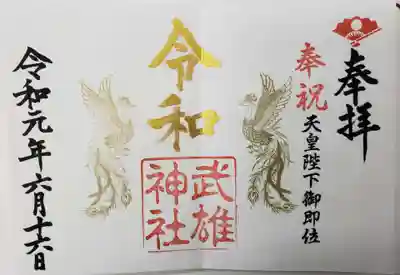 奉拝
奉祝 天皇陛下御即位
令和
武雄
神社
令和元年六月十六日